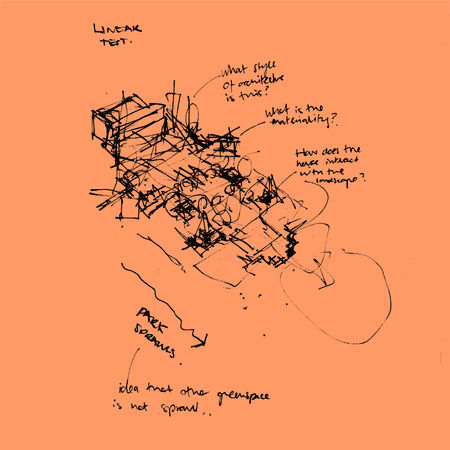 LINEAR
TEST.
What style
of architecture
is this?
What is the
materiality?
How does the
house interact
with the
landscape?
PARK
SPRAWLS
idea that other greenspace
is not sprawl..